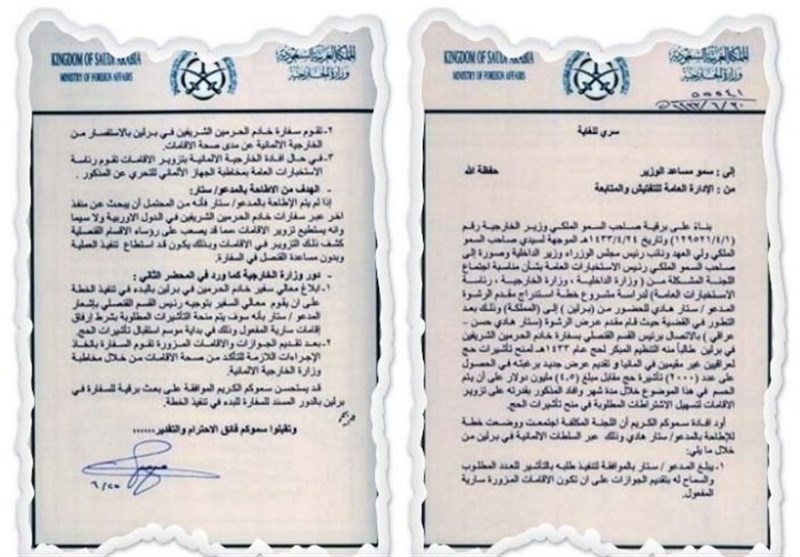 KINGDOM OF SAUDI ARABIA
MINISTRY OF FOREIGN AFFAIRS
المملكة العربية السعودية
وزارة الخارجية
سري للغاية
إلى: سمو مساعد الوزير حفظة الله
من: الإدارة العامة للتفتيش والمتابعة
بناءً على برقية صاحب السمو الملكي وزير الخارجية رقم
(١٢٩٥٢١/٤/١) وتاريخ ١٤٣٣/٤/٢٤هـ الموجهة لسيدي صاحب السمو
الملكي ولي العهد ونائب رئيس مجلس الوزراء وزير الداخلية وصورة إلى
صاحب السمو الملكي رئيس الاستخبارات العامة بشأن مناسبة اجتماع
اللجنة المشكلة من ( وزارة الداخلية ، وزارة الخارجية ، رئاسة
الاستخبارات العامة) لدراسة مشروع خطة استدراج مقدم الرشوة
المدعو/ ستار هادي للحضور من (برلين) إلى (المملكة) وذلك بعد
التطور في القضية حيث قام مقدم عرض الرشوة (ستار هادي حسن -
عراقي) بالاتصال برئيس القسم القنصلي بسفارة خادم الحرمين الشريفين
في برلين طالباً منه التنظيم المبكر لحج عام ١٤٣٣هـ لمنح تأشيرات حج
لعراقيين غير مقيمين في المانيا و تقديم عرض جديد برغبته في الحصول
على عدد (٢٠٠٠) تأشيرة حج مقابل مبلغ (٤,٥) مليون دولار على أن يتم
الحسم في هذا الموضوع خلال مدة شهر وأفاد المذكور بقدرته على تزوير
الاقامات لتسهيل الاشتراطات المطلوبة في منح تأشيرات الحج.
أود افادة سموكم الكريم أن اللجنة المكلفة اجتمعت ووضعت خطة
للإطاحة بالمدعو/ ستار هادي وذلك عبر السلطات الالمانية في برلين من
خلال ما يلي:
١- يبلغ المدعو/ ستار بالموافقة لتنفيذ طلبه بالتأشير للعدد المطلوب
والسماح له بتقديم الجوازات على ان تكون الاقامات المزورة سارية
المفعول.
KINGDOM OF SAUDI ARABIA
MINISTRY OF FOREIGN AFFAIRS
المملكة العربية السعودية
وزارة الخارجية
٢- تقوم سفارة خادم الحرمين الشريفين في برلين بالاستفسار من
الخارجية الالمانية عن مدى صحة الاقامات.
٣- في حال افادة الخارجية الالمانية بتزوير الاقامات تقوم رئاسة
الاستخبارات العامة بمخاطبة الجهاز الألماني للتحري عن المذكور .
- الهدف من الاطاحة بالمدعو/ ستار:
إذا لم يتم الإطاحة بالمدعو/ ستار فأنه من المحتمل أن يبحث عن منفذ
اخر عبر سفارات خادم الحرمين الشريفين في الدول الاوربية ولا سيما
وانه يستطيع تزوير الاقامات مما قد يصعب على رؤساء الاقسام القنصلية
كشف ذلك التزوير في الاقامات وبذلك يكون قد استطاع تنفيذ العملية
وبدون مساعدة القنصل في السفارة.
- دور وزارة الخارجية كما ورد في المحضر الثاني :
١- ابلاغ معالي سفير خادم الحرمين في برلين بالبدء في تنفيذ الخطة
على ان يقوم معالي السفير بتوجيه رئيس القسم القنصلي بإشعار
المدعو / ستار بأنه سوف يتم منحة التأشيرات المطلوبة بشرط ارفاق
إقامات سارية المفعول وذلك في بداية موسم استقبال تأشيرات الحج.
٢- بعد تقديم الجوازات والاقامات المزورة تقوم السفارة باتخاذ
الإجراءات اللازمة للتأكد من صحة الاقامات من خلال مخاطبة
وزارة الخارجية الالمانية.
قد يستحسن سموكم الكريم الموافقة على بعث برقية للسفارة في
برلين بالدور المسند للسفارة للبدء في تنفيذ الخطة.
وتقبلوا سموكم فائق الاحترام والتقدير،،،،،،